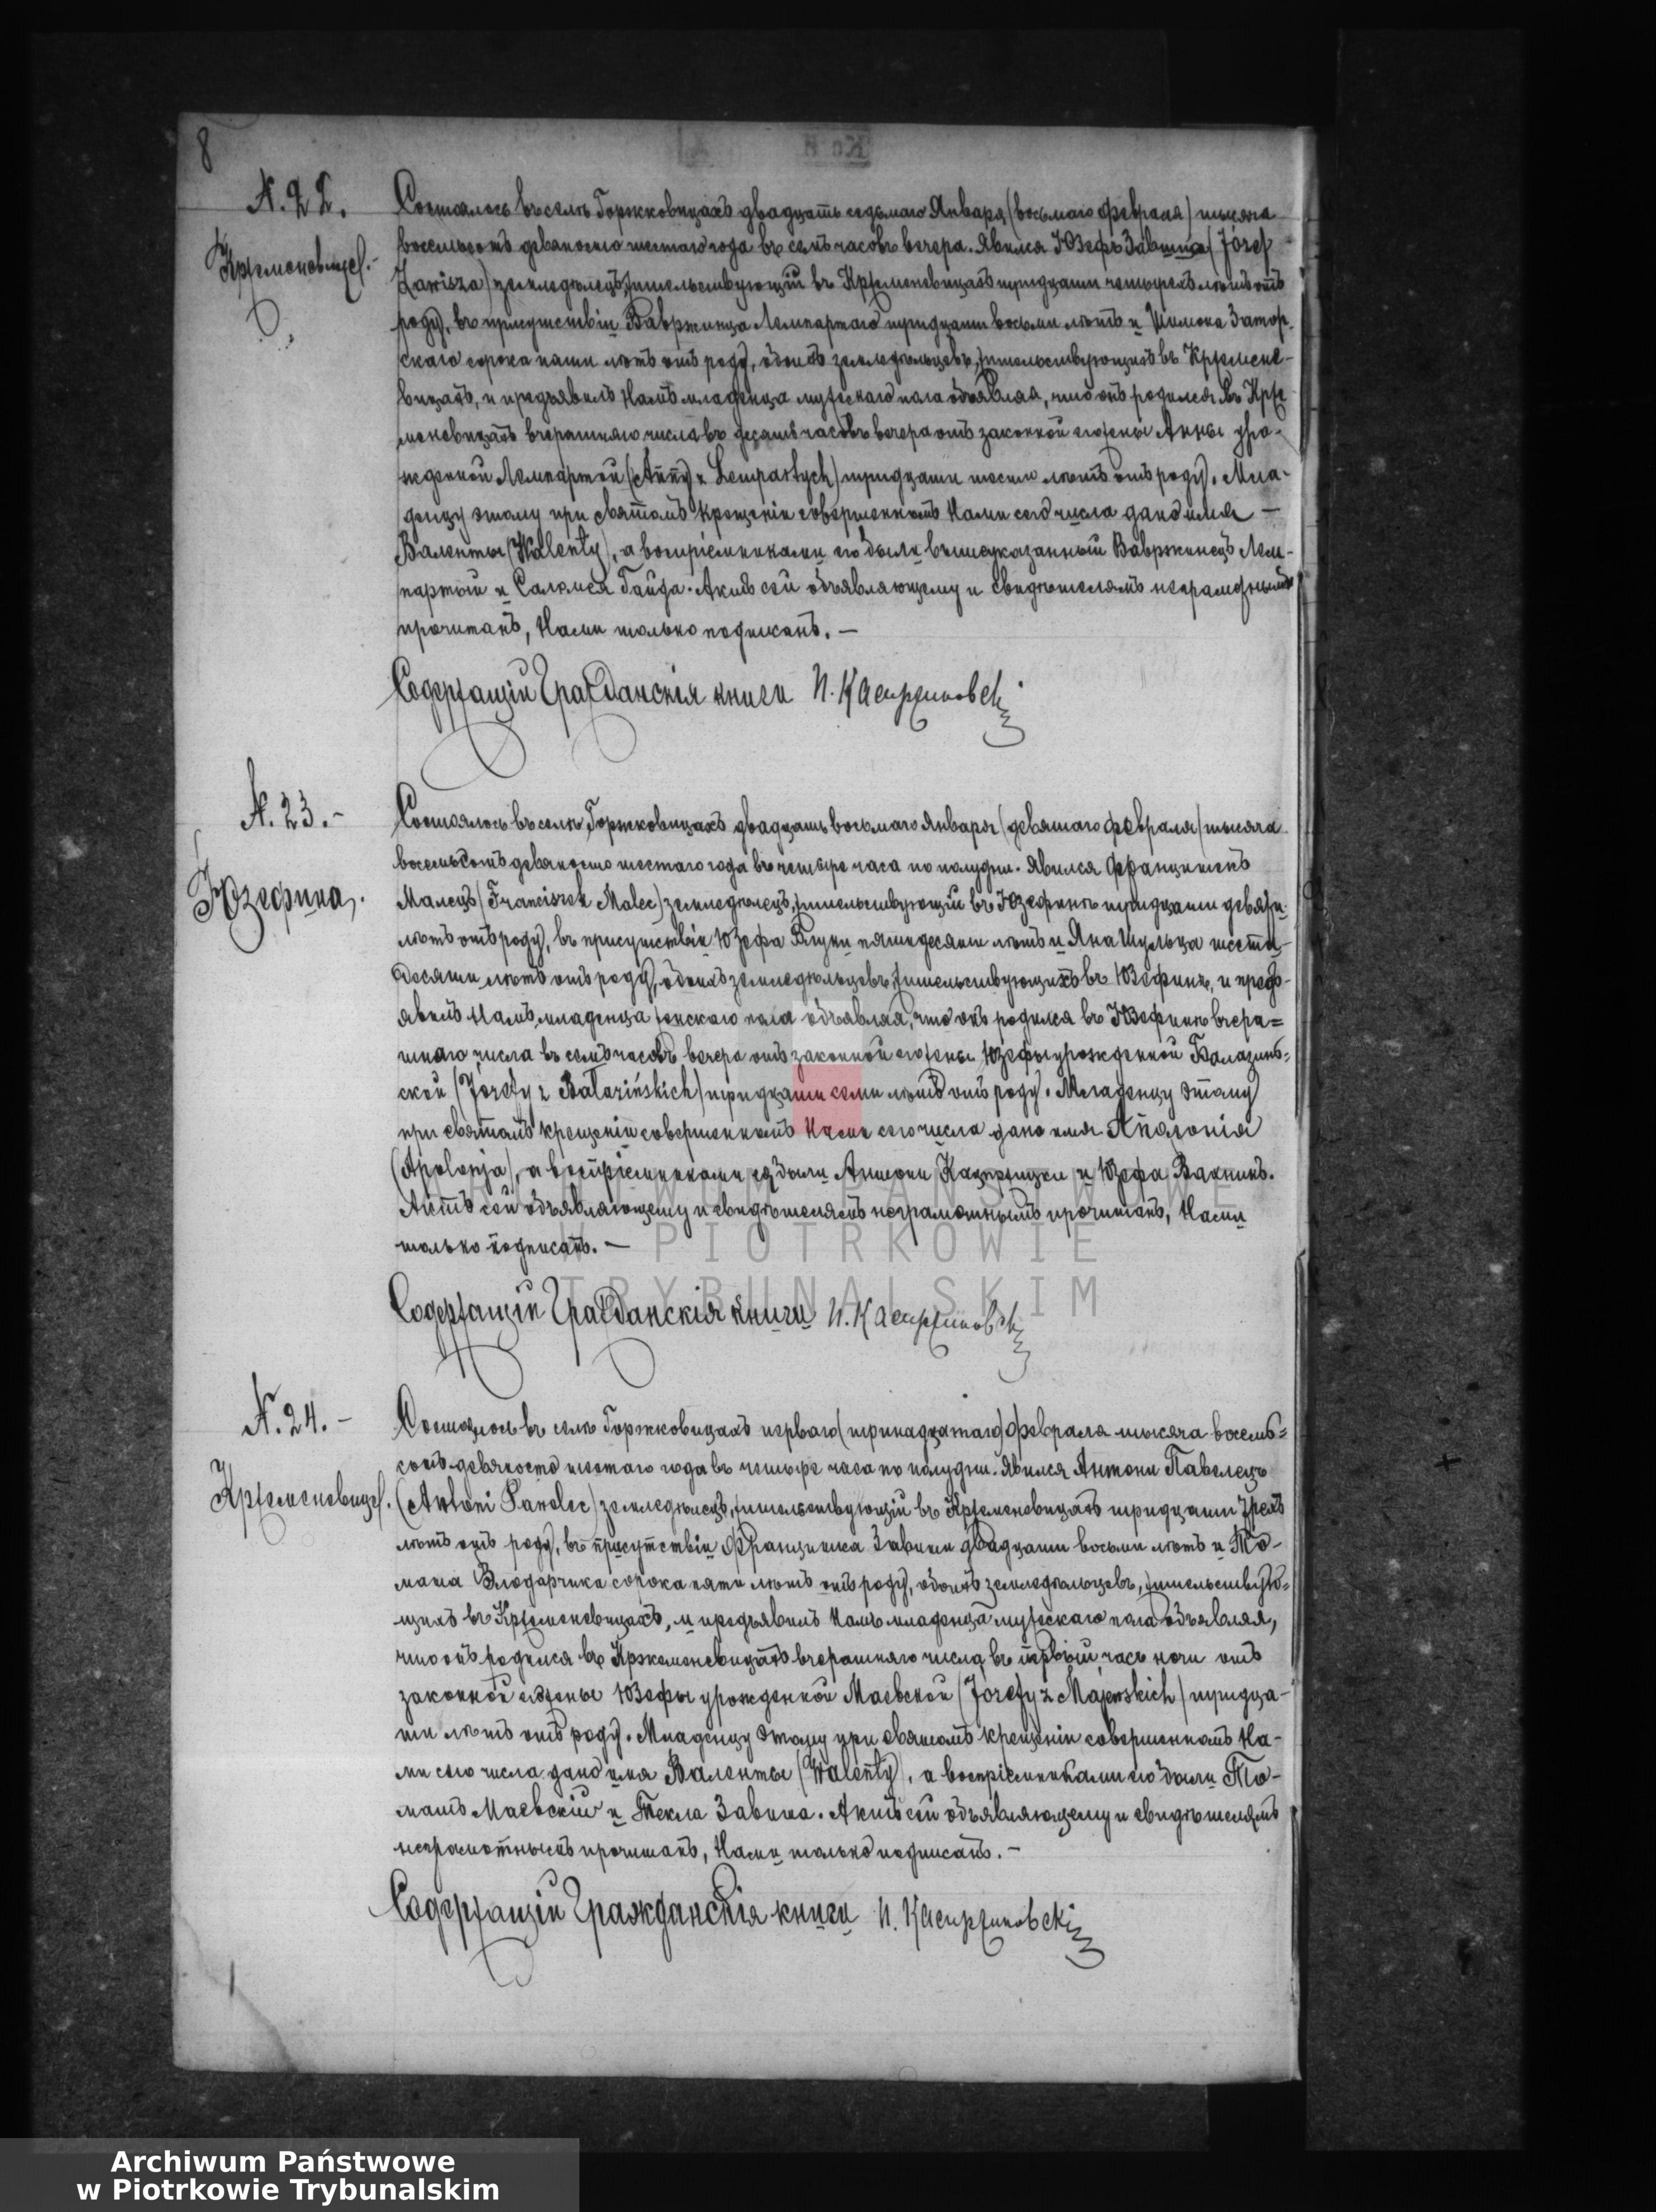 8
N. 22.
Кржеменевице.-
Состоялось въ селѣ Горжковицахъ двадцать седьмаго Января (восьмаго февраля) тысяча
восемьсотъ девяносто шестаго года въ семь часовъ вечера. Явился Юзефъ Завиша (Józef
Zawisza) земледѣлецъ, жительствующій въ Кржеменевицахъ тридцати четырехъ лѣтъ отъ
роду, въ присутствіи Вавржинца Лемпартаго тридцати восьми лѣтъ и Шимона Затор-
скаго сорока пяти лѣтъ отъ роду, обоихъ земледѣльцевъ, жительствующихъ въ Кржемене-
вицахъ, и предъявилъ Намъ младенца мужескаго пола объявляя, что онъ родился въ Крже-
меневицахъ вчерашняго числа въ десять часовъ вечера отъ законной его жены Анны уро-
жденной Лемпартой (Anny z Lempartych) тридцати шести лѣтъ отъ роду. Мла-
денцу этому при святомъ крещеніи совершенномъ Нами сего числа дано имя -
Валенты (Walenty), а воспріемниками его были вышеуказанный Вавржинецъ Лем-
партый и Саломея Гайда. Актъ сей объявляющему и свидѣтелямъ неграмотнымъ
прочитанъ, Нами только подписанъ. -
Содержащій Гражданскія книги
N. 23.-
Юзефина.
Состоялось въ селѣ Горжковицахъ двадцать восьмаго Января (девятаго февраля) тысяча
восемьсотъ девяносто шестаго года въ четыре часа по полудни. Явился Францишекъ
Малецъ (Franciszek Malec) земледѣлецъ, жительствующій въ Юзефинѣ тридцати девяти
лѣтъ отъ роду, въ присутствіи Юзефа пятидесяти лѣтъ и Яна Шульца шести-
десяти лѣтъ отъ роду, обоихъ земледѣльцевъ, жительствующихъ въ Юзефинѣ, и предъ-
явилъ Намъ младенца женскаго пола объявляя, что онъ родился въ Юзефинѣ вчера=
шняго числа въ семь часовъ вечера отъ законной его жены Юзефы урожденной Балазинь=
ской (Józefy z Balazińskich) тридцати семи лѣтъ отъ роду. Младенцу этому
при святомъ крещеніи совершенномъ Нами сего числа дано имя Аполонія
(Apolonja), а воспріемниками ея были Антони и Юзефа
Актъ сей объявляющему и свидѣтелямъ неграмотнымъ прочитанъ, Нами
только подписанъ. -
Содержащій Гражданскія книги
N. 24. -
Кржеменевице.
Состоялось въ селѣ Горжковицахъ перваго (тринадцатаго) февраля тысяча восемь=
сотъ девяносто шестаго года въ четыре часа по полудни. Явился Антони Павелецъ
(Antoni Pawelec) земледѣлецъ, жительствующій въ Кржеменевицахъ тридцати трехъ
лѣтъ отъ роду, въ присутствіи Францишка Завиши двадцати восьми лѣтъ и То-
маша Влодарчика сорока пяти лѣтъ отъ роду, обоихъ земледѣльцевъ, жительствую=
щихъ въ Кржеменевицахъ, и предъявилъ Намъ младенца мужескаго пола объявляя,
что онъ родился въ Кржеменевицахъ вчерашняго числа въ первый часъ ночи отъ
законной его жены Юзефы урожденной Маевской (Józefy z Majewskich) тридца-
ти лѣтъ отъ роду. Младенцу этому при святомъ крещеніи совершенномъ На-
ми сего числа дано имя Валенты (Walenty), а воспріемниками его были То-
машъ Маевскій и Текла Завиша. Актъ сей объявляющему и свидѣтелямъ
неграмотнымъ прочитанъ, Нами только подписанъ. -
Содержащій Гражданскія книги
ARCHIWUM PAŃSTWOWE
W PIOTRKOWIE
TRYBUNALSKIM
Archiwum Państwowe
w Piotrkowie Trybunalskim